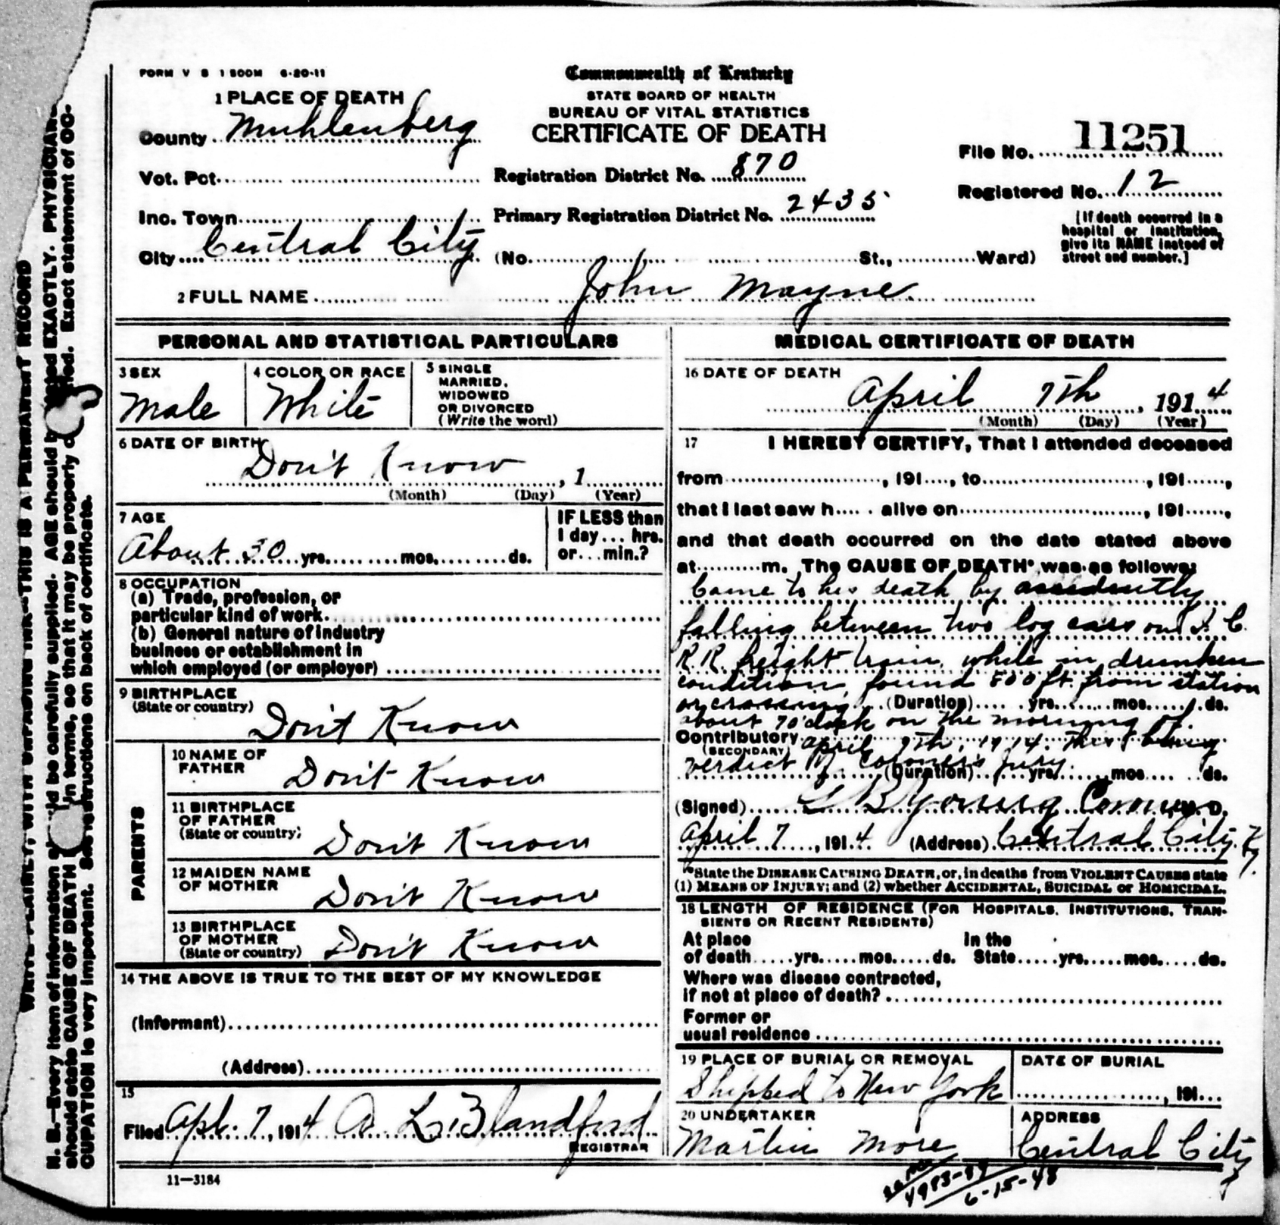 FORM V S 1 500M 6-20-11
Commonwealth of Kentucky
STATE BOARD OF HEALTH
BUREAU OF VITAL STATISTICS
CERTIFICATE OF DEATH
1 PLACE OF DEATH
County Muhlenberg
Vot. Pct.
Inc. Town
City Central City
Registration District No. 870
Primary Registration District No. 2435
(No. St., Ward)
File No. 11251
Registered No. 12
[If death occurred in a
hospital or institution,
give its NAME instead of
street and number.]
2 FULL NAME John Mayne
PERSONAL AND STATISTICAL PARTICULARS
3 SEX
Male
4 COLOR OR RACE
White
5 SINGLE
MARRIED,
WIDOWED
OR DIVORCED
(Write the word)
6 DATE OF BIRTH
Don't Know , 1
(Month) (Day) (Year)
7 AGE
About 30 yrs. mos. ds.
IF LESS than
1 day... hrs.
or...min.?
8 OCCUPATION
(a) Trade, profession, or
particular kind of work
(b) General nature of industry
business or establishment in
which employed (or employer)
9 BIRTHPLACE
(State or country)
Don't Know
PARENTS
10 NAME OF
FATHER
Don't Know
11 BIRTHPLACE
OF FATHER
(State or country)
Don't Know
12 MAIDEN NAME
OF MOTHER
Don't Know
13 BIRTHPLACE
OF MOTHER
(State or country)
Don't Know
14 THE ABOVE IS TRUE TO THE BEST OF MY KNOWLEDGE
(Informant)
(Address)
15
Filed Apl. 7, 1914 A L. Blandford
REGISTRAR
11—3184
MEDICAL CERTIFICATE OF DEATH
16 DATE OF DEATH
April 7th, 1914
(Month) (Day) (Year)
17 I HEREBY CERTIFY, That I attended deceased
from , 191 , to , 191 ,
that I last saw h alive on , 191 ,
and that death occurred on the date stated above
at m. The CAUSE OF DEATH* was as follows:
Came to his death by accidently
falling between two log cars on I. C.
R.R. freight train, while in drunken
condition, found 500 ft. from station
or crossing (Duration) yrs. mos. ds.
about 7 o'clock on the morning of
Contributory April 7th, 1914. This being
(SECONDARY)
verdict of Coroner's Jury.
(Duration) yrs. mos. ds.
(Signed) Young Coroner M. D.
April 7, 1914 (Address) Central City, Ky.
*State the DISEASE CAUSING DEATH, or, in deaths from VIOLENT CAUSES state
(1) MEANS OF INJURY; and (2) whether ACCIDENTAL, SUICIDAL or HOMICIDAL.
18 LENGTH OF RESIDENCE (FOR HOSPITALS, INSTITUTIONS, TRAN-
SIENTS OR RECENT RESIDENTS)
At place In the
of death yrs. mos. ds. State yrs. mos. ds.
Where was disease contracted,
if not at place of death?
Former or
usual residence
19 PLACE OF BURIAL OR REMOVAL
Shipped to New York
DATE OF BURIAL
, 191
20 UNDERTAKER
Martin More
ADDRESS
Central City
6-15-48
WRITE PLAINLY, WITH UNFADING INK—THIS IS A PERMANENT RECORD
N. B.—Every item of information should be carefully supplied. AGE should be stated EXACTLY. PHYSICIANS
should state CAUSE OF DEATH in terms, so that it may be properly classified. Exact statement of OC-
CUPATION is very important. See instructions on back of certificate.